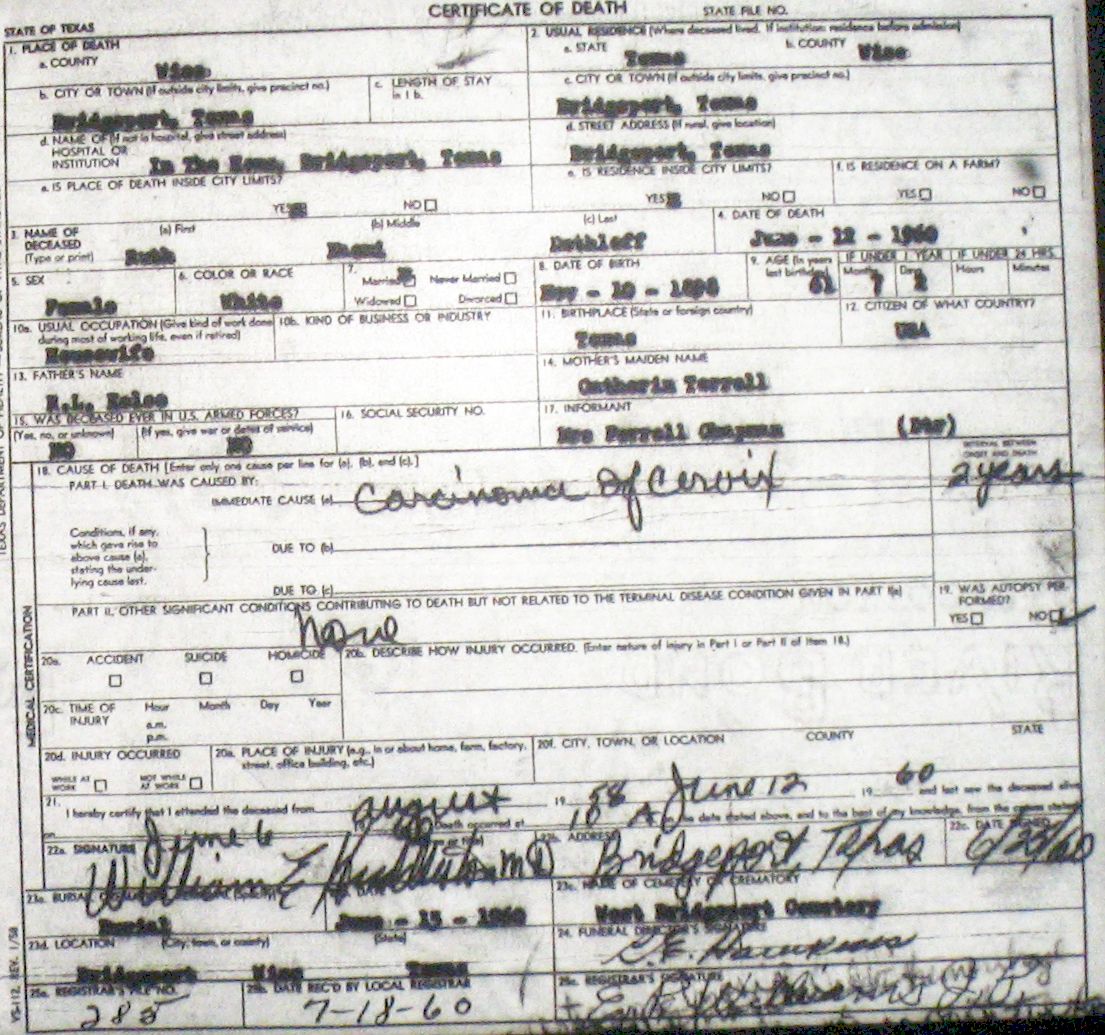 CERTIFICATE OF DEATH STATE FILE NO.
STATE OF TEXAS
1. PLACE OF DEATH
a. COUNTY
Wise
2. USUAL RESIDENCE (Where deceased lived. If institution: residence before admission)
a. STATE b. COUNTY
Texas Wise
b. CITY OR TOWN (If outside city limits, give precinct no.)
Bridgeport, Texas
c. LENGTH OF STAY
in 1 b.
c. CITY OR TOWN (If outside city limits, give precinct no.)
Bridgeport, Texas
d. NAME OF (If not in hospital, give street address)
HOSPITAL OR
INSTITUTION In The Home, Bridgeport, Texas
d. STREET ADDRESS (If rural, give location)
Bridgeport, Texas
e. IS PLACE OF DEATH INSIDE CITY LIMITS?
YES NO
e. IS RESIDENCE INSIDE CITY LIMITS?
YES NO
f. IS RESIDENCE ON A FARM?
YES NO
3. NAME OF
DECEASED
(Type or print)
(a) First (b) Middle (c) Last
Ruth Naomi
4. DATE OF DEATH
June - 12 - 1960
5. SEX
Female
6. COLOR OR RACE
White
7.
Married Never Married
Widowed Divorced
8. DATE OF BIRTH
9. AGE (In years
last birthday)
61
IF UNDER 1 YEAR IF UNDER 24 HRS.
Months Days Hours Minutes
7 2
10a. USUAL OCCUPATION (Give kind of work done
during most of working life, even if retired)
Housewife
10b. KIND OF BUSINESS OR INDUSTRY
11. BIRTHPLACE (State or foreign country)
Texas
12. CITIZEN OF WHAT COUNTRY?
USA
13. FATHER'S NAME
14. MOTHER'S MAIDEN NAME
Catherin Terrell
15. WAS DECEASED EVER IN U.S. ARMED FORCES?
(Yes, no, or unknown) (If yes, give war or dates of service)
NO NO
16. SOCIAL SECURITY NO.
17. INFORMANT
Mrs Ferrell Chapman (Dtr)
MEDICAL CERTIFICATION
18. CAUSE OF DEATH [Enter only one cause per line for (a), (b), and (c).]
PART I. DEATH WAS CAUSED BY:
IMMEDIATE CAUSE (a) Carcinoma of Cervix
INTERVAL BETWEEN
ONSET AND DEATH
2 years
Conditions, if any,
which gave rise to
above cause (a),
stating the under-
lying cause last.
DUE TO (b)
DUE TO (c)
PART II. OTHER SIGNIFICANT CONDITIONS CONTRIBUTING TO DEATH BUT NOT RELATED TO THE TERMINAL DISEASE CONDITION GIVEN IN PART I(a)
None
19. WAS AUTOPSY PER-
FORMED?
YES NO
20a. ACCIDENT SUICIDE HOMICIDE
20b. DESCRIBE HOW INJURY OCCURRED. (Enter nature of injury in Part I or Part II of Item 18.)
20c. TIME OF
INJURY
Hour Month Day Year
a.m.
p.m.
20d. INJURY OCCURRED
WHILE AT
WORK
NOT WHILE
AT WORK
20e. PLACE OF INJURY (e.g., in or about home, farm, factory,
street, office building, etc.)
20f. CITY, TOWN, OR LOCATION COUNTY STATE
21.
I hereby certify that I attended the deceased from August 19 58 June 12 19 60 and last saw the deceased alive
on June 6 Death occurred at 10 A the date stated above, and to the best of my knowledge, from the causes stated
22a. SIGNATURE
William E MD
22b. ADDRESS
Bridgeport, Texas
22c. DATE SIGNED
6/22/60
23a. BURIAL
Burial
June - 15 - 1960
23c. NAME OF CEMETERY OR CREMATORY
West Bridgeport Cemetery
23d. LOCATION (City, town, or county) (State)
Bridgeport Wise Texas
24. FUNERAL DIRECTOR'S SIGNATURE
C.E. Hawkins
25a. REGISTRAR'S FILE NO.
285
25b. DATE REC'D BY LOCAL REGISTRAR
7-18-60
25c. REGISTRAR'S SIGNATURE
VS-112, REV. 1/58